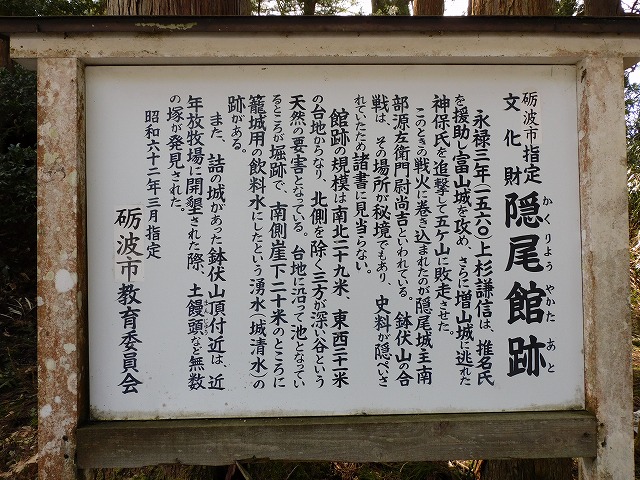 砺波市指定
文化財
隠尾館跡
かくりよう やかた あと
永禄三年(一五六〇)上杉謙信は、椎名氏
を援助し富山城を攻め、さらに増山城に逃れた
神保氏を追撃して五ケ山に敗走させた。
このときの戦火に巻き込まれたのが隠尾城主南
部源左衛門尉尚吉といわれている。鉢伏山の合
戦は、その場所が秘境でもあり、史料が隠ぺいさ
れていたため諸書に見当らない。
館跡の規模は南北二十九米、東西三十米
の台地からなり、北側を除く三方が深い谷という
天然の要害となっている。台地に沿って池となってい
るところが堀跡で、南側崖下二十米のところに
籠城用の飲料水にしたという湧水(城清水)の
跡がある。
また、詰の城があった鉢伏山頂付近は、近
年放牧場に開墾された際、土饅頭など無数
の塚が発見された。
昭和六十二年三月指定
砺波市教育委員会